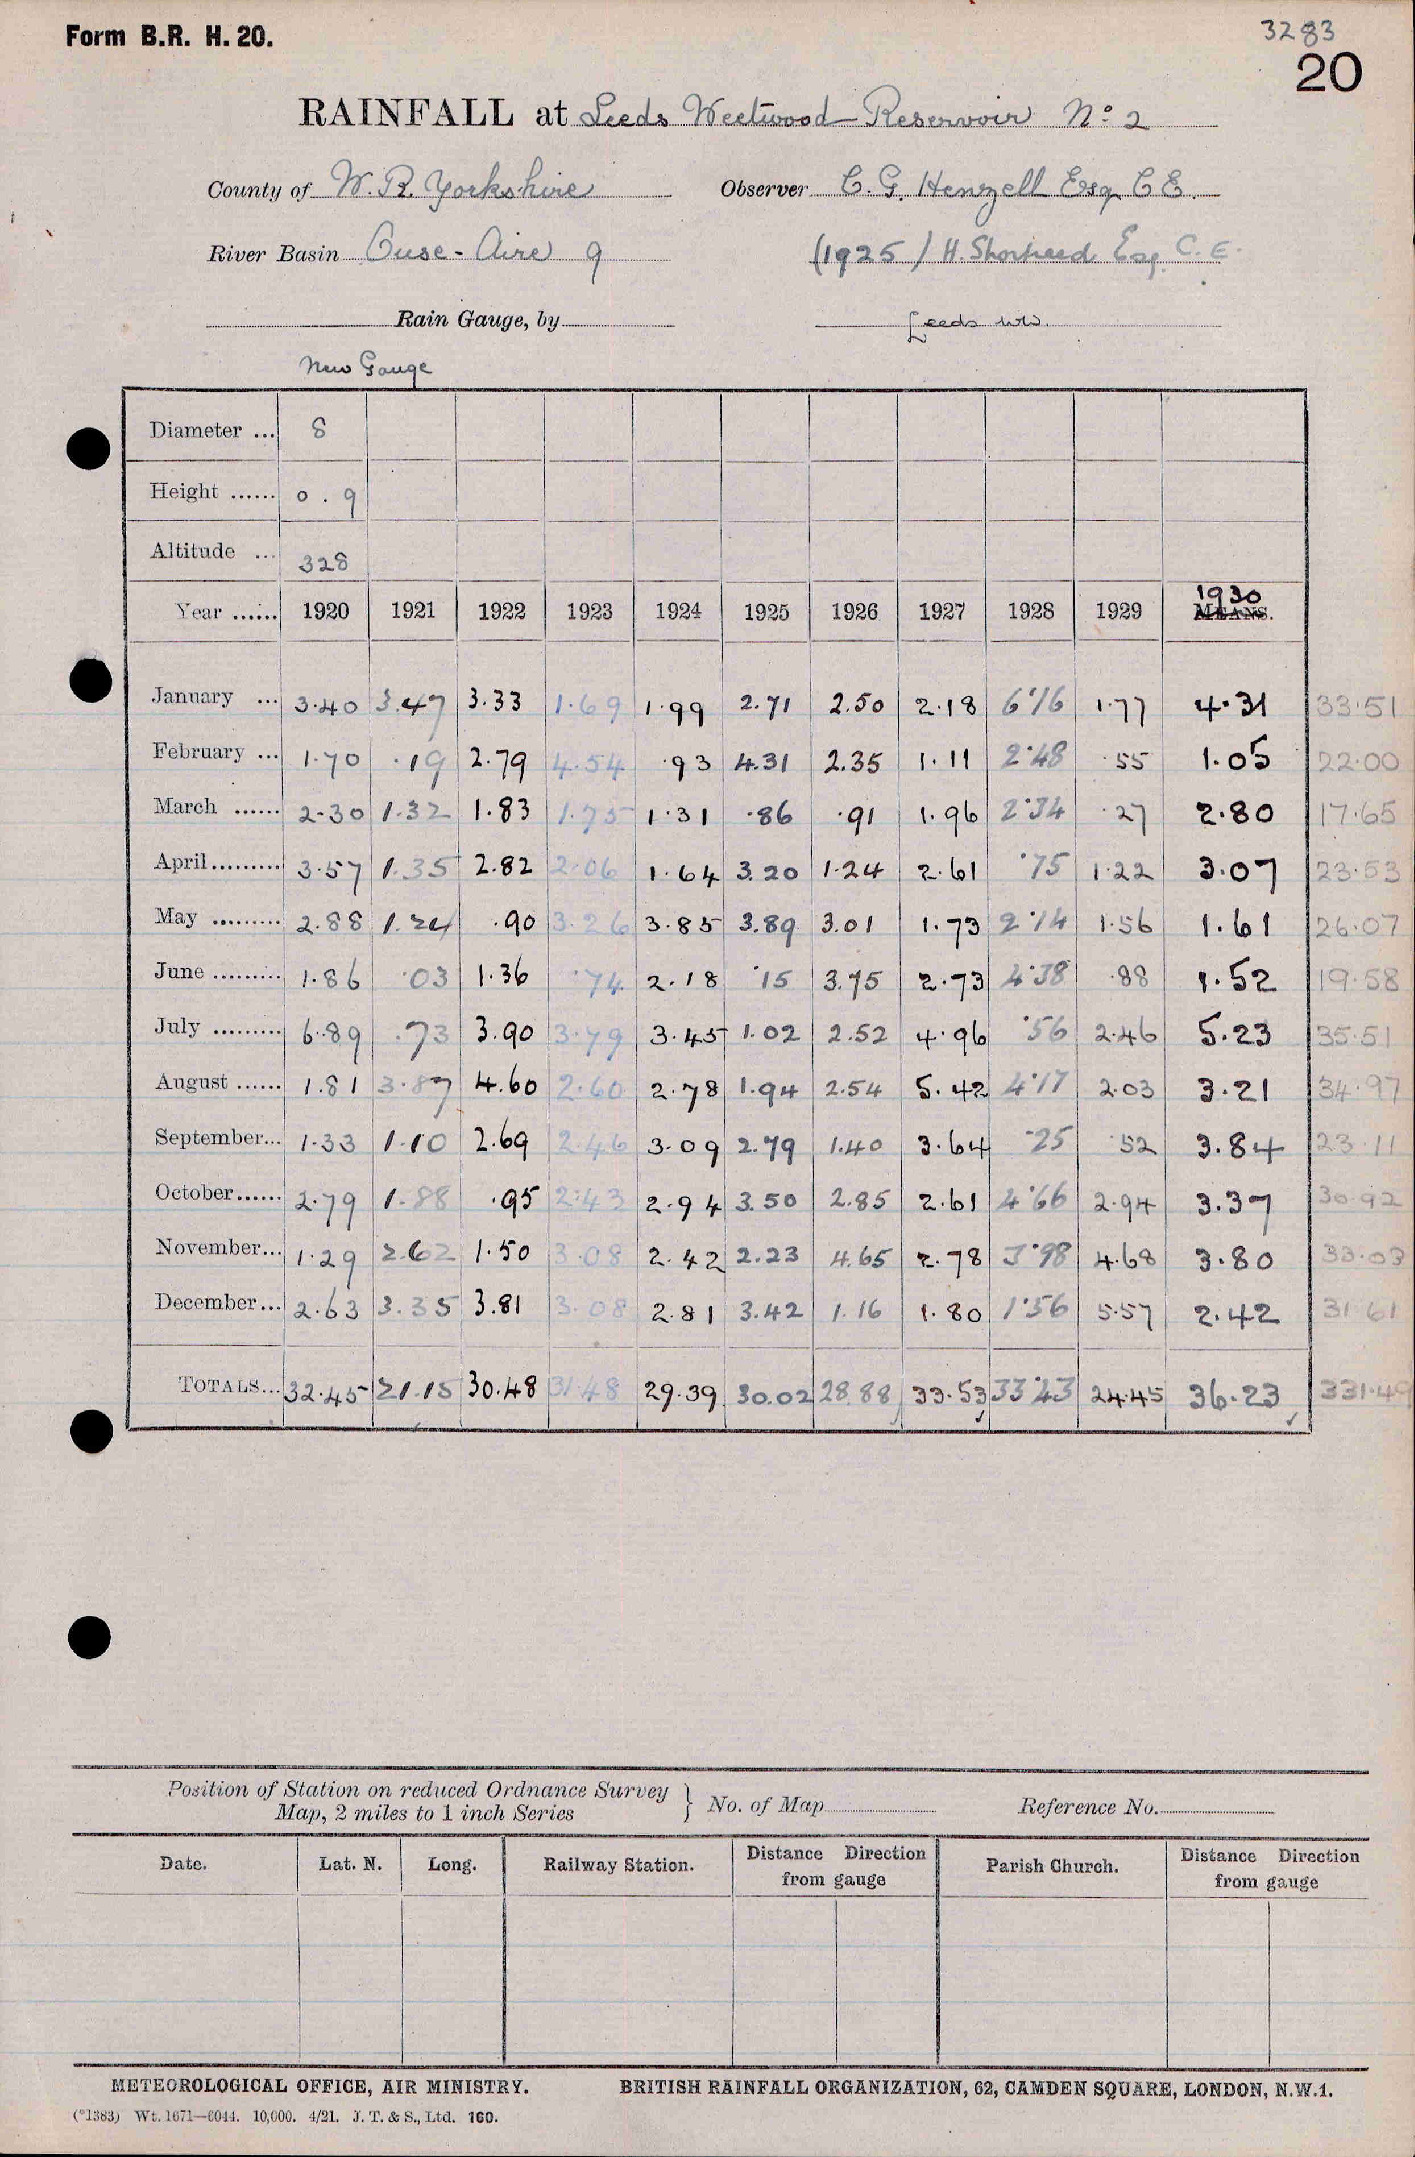 Form B.R. H. 20.
3283
20
RAINFALL at Leeds Weetwood Reservoir No. 2
County of W. R. Yorkshire Observer C. G. Henzell Esq C E.
River Basin Ouse - Aire 9 (1925) H. Shortreed Esq. C. E.
Rain Gauge, by Leeds WW.
New Gauge
Diameter ... 8
Height ...... 0 . 9
Altitude ... 328
Year ...... 1920 1921 1922 1923 1924 1925 1926 1927 1928 1929 1930 MEANS.
January ... 3.40 3.47 3.33 1.69 1.99 2.71 2.50 2.18 6.16 1.77 4.31 33.51
February ... 1.70 .19 2.79 4.54 .93 4.31 2.35 1.11 2.48 .55 1.05 22.00
March ...... 2.30 1.32 1.83 1.75 1.31 .86 .91 1.96 2.34 .27 2.80 17.65
April......... 3.57 1.35 2.82 2.06 1.64 3.20 1.24 2.61 .75 1.22 3.07 23.53
May ......... 2.88 1.24 .90 3.26 3.85 3.89 3.01 1.73 2.14 1.56 1.61 26.07
June ......... 1.86 .03 1.36 .74 2.18 .15 3.75 2.73 4.38 .88 1.52 19.58
July ......... 6.89 .73 3.90 3.79 3.45 1.02 2.52 4.96 .56 2.46 5.23 35.51
August ...... 1.81 3.87 4.60 2.60 2.78 1.94 2.54 5.42 4.17 2.03 3.21 34.97
September... 1.33 1.10 2.69 2.46 3.09 2.79 1.40 3.64 .25 .52 3.84 23.11
October...... 2.79 1.88 .95 2.43 2.94 3.50 2.85 2.61 4.66 2.94 3.37 30.92
November... 1.29 2.62 1.50 3.08 2.42 2.23 4.65 2.78 3.98 4.68 3.80 33.03
December... 2.63 3.35 3.81 3.08 2.81 3.42 1.16 1.80 1.56 5.57 2.42 31.61
TOTALS... 32.45 21.15 30.48 31.48 29.39 30.02 28.88 33.53 33.43 24.45 36.23 331.49
Position of Station on reduced Ordnance Survey
Map, 2 miles to 1 inch Series } No. of Map Reference No.
Date. Lat. N. Long. Railway Station. Distance Direction from gauge Parish Church. Distance Direction from gauge
METEOROLOGICAL OFFICE, AIR MINISTRY. BRITISH RAINFALL ORGANIZATION, 62, CAMDEN SQUARE, LONDON, N.W.1.
(*1383) Wt. 1671—6044. 10,000. 4/21. J. T. & S., Ltd. 160.